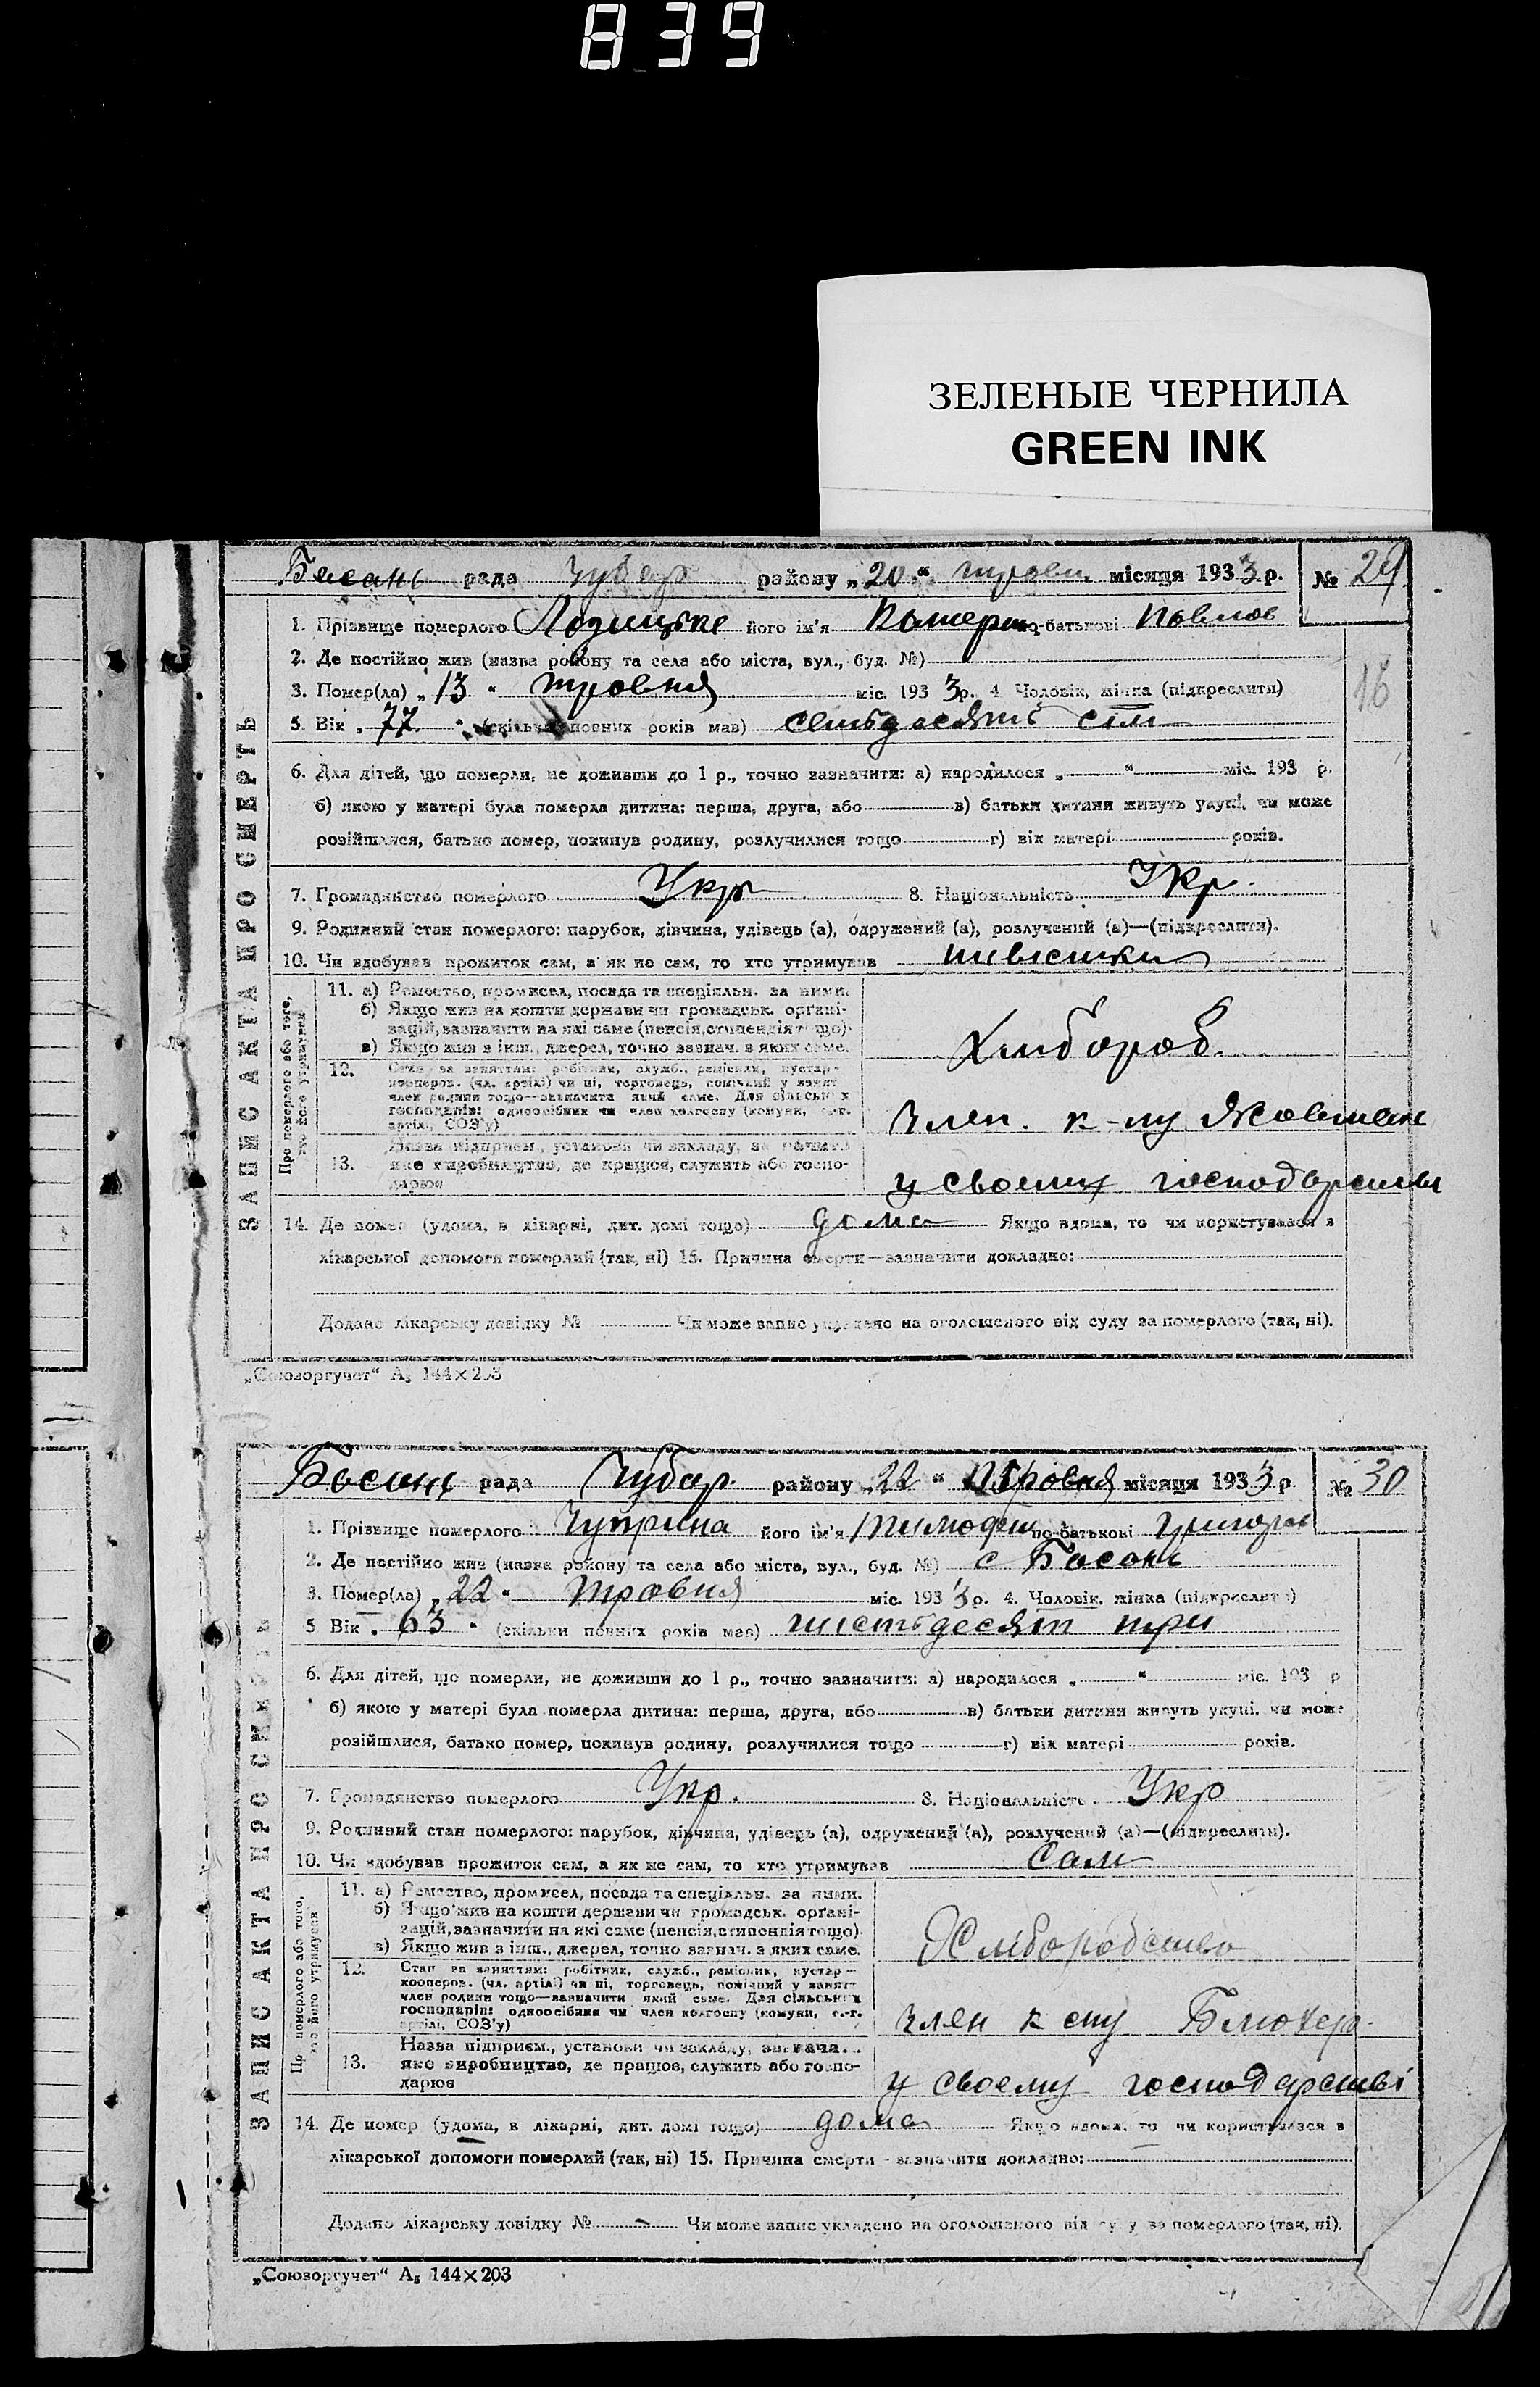 839
ЗЕЛЕНЫЕ ЧЕРНИЛА
GREEN INK
Басань рада Чубар району „20“ травн місяця 1933 р. № 29
1. Прізвище померлого його ім'я Катерин по-батькові Павлов
2. Де постійно жив (назва району та села або міста, вул., буд. №)
3. Помер(ла) „13“ травня міс. 1933 р. 4 Чоловік, жінка (підкреслити)
16
5. Вік „77“ (скільки повних років мав) семьдесять сім
6. Для дітей, що померли, не доживши до 1 р., точно зазначити: а) народилося „ “ міс. 193 р.
б) якою у матері була померла дитина: перша, друга, або в) батьки дитини живуть укупі, чи може
розійшлися, батько помер, покинув родину, розлучилися тощо г) вік матері років.
7. Громадянство померлого Укр 8. Національність Укр.
9. Родинний стан померлого: парубок, дівчина, удівець (а), одружений (а), розлучений (а)—(підкреслити).
10. Чи здобував прожиток сам, а як не сам, то хто утримував
ЗАПИС АКТА ПРО СМЕРТЬ
Про померлого або того, хто його утримував
11. а) Ремество, промисел, посада та спеціяльн. за ними.
б) Якщо жив на кошти держави чи громадськ. органі-
зацій, зазначити на які саме (пенсія, стипендія тощо)
в) Якщо жив з інш., джерел, точно зазнач. з яких саме.
Хлибороб.
12. Стан за заняттям: робітник, служб., ремісник, кустар-
кооперов. (чл. артілі) чи ні, торговець, помічний у занят
член родини тощо—зазначити який саме. Для сільських
господарів: одноосібник чи член колгоспу (комуни, с.-г.
артілі, СОЗ'у)
член. к-пу Жовтень
13. Назва підприєм., установи чи закладу, зазначити
яке виробництво, де працює, служить або госпо-
дарює
у своему господарстві
14. Де помер (удома, в лікарні, дит. домі тощо) дома Якщо вдома, то чи користувався з
лікарської допомоги померлий (так, ні) 15. Причина смерти—зазначити докладно:
Додано лікарську довідку № Чи може запис укладено на оголошеного від суду за померлого (так, ні).
„Союзоргучет“ А₅ 144×203
Басань рада Чубар. району „22“ Травня місяця 1933 р № 30
1. Прізвище померлого Чуприна його ім'я Тимофій по-батькові Григоров
2. Де постійно жив (назва району та села або міста, вул., буд. №) с Басань
3. Помер(ла) „22“ травня міс. 1933 р. 4. Чоловік, жінка (підкреслити)
5 Вік „63“ (скільки повних років мав) шистьдесят три
6. Для дітей, що померли, не доживши до 1 р., точно зазначити: а) народилося „ “ міс. 193 р
б) якою у матері була померла дитина: перша, друга, або в) батьки дитини живуть укупі, чи може
розійшлися, батько помер, покинув родину, розлучилися тощо г) вік матері років.
7. Громадянство померлого Укр. 8. Національність Укр
9. Родинний стан померлого: парубок, дівчина, удівець (а), одружений (а), розлучений (а)—(підкреслити).
10. Чи здобував прожиток сам, а як не сам, то хто утримував Сам
ЗАПИС АКТА ПРО СМЕРТЬ
Про померлого або того, хто його утримував
11. а) Ремество, промисел, посада та спеціяльн. за ними.
б) Якщо жив на кошти держави чи громадськ. органі-
зацій, зазначити на які саме (пенсія, стипендія тощо)
в) Якщо жив з інш., джерел, точно зазнач. з яких саме.
Хліборобство
12. Стан за заняттям: робітник, служб., ремісник, кустар-
кооперов. (чл. артілі) чи ні, торговець, помічний у занят-
член родини тощо—зазначити який саме. Для сільських
господарів: одноосібник чи член колгоспу (комуни, с.-г.
артілі, СОЗ'у)
член к спу Блюхера
13. Назва підприєм., установи чи закладу, зазнача...
яке виробництво, де працює, служить або госпо-
дарює
у своему господарстві
14. Де помер (удома, в лікарні, дит. домі тощо) дома Якщо вдома, то чи користувався з
лікарської допомоги померлий (так, ні) 15. Причина смерти - зазначити докладно:
Додано лікарську довідку № Чи може запис укладено на оголошеного від суду за померлого (так, ні).
„Союзоргучет“ А₅ 144×203